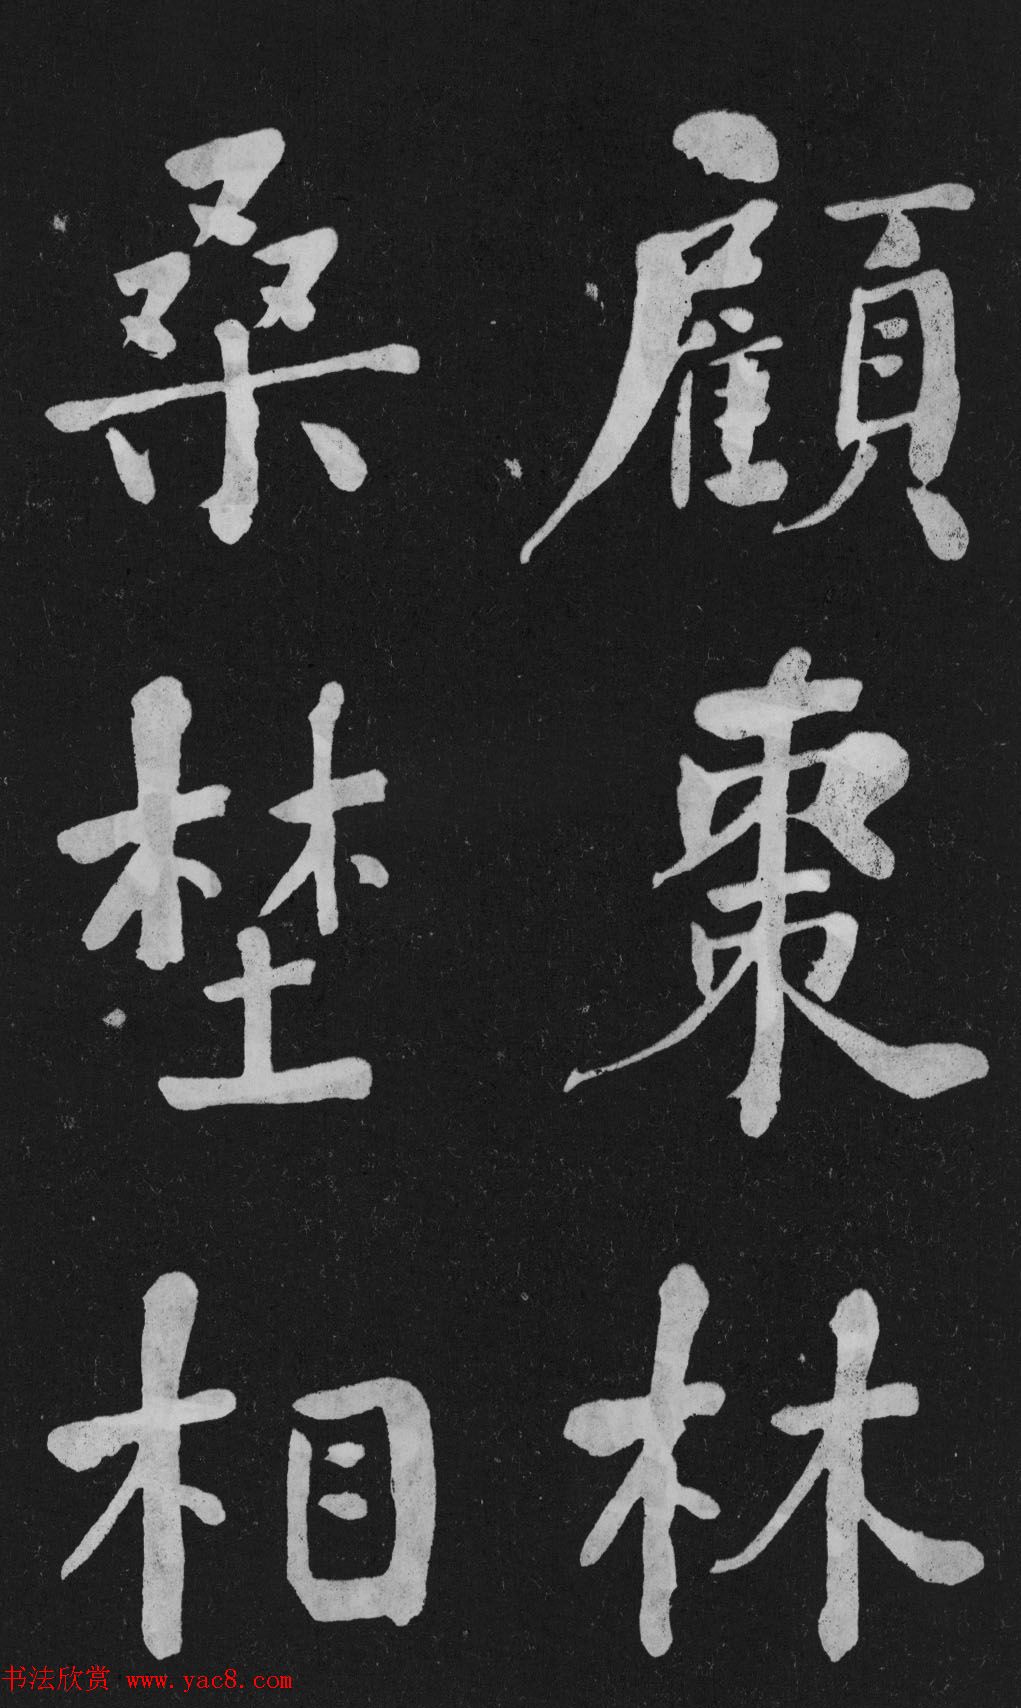 顧棗林
桑埜相
书法欣赏 www.yac8.com